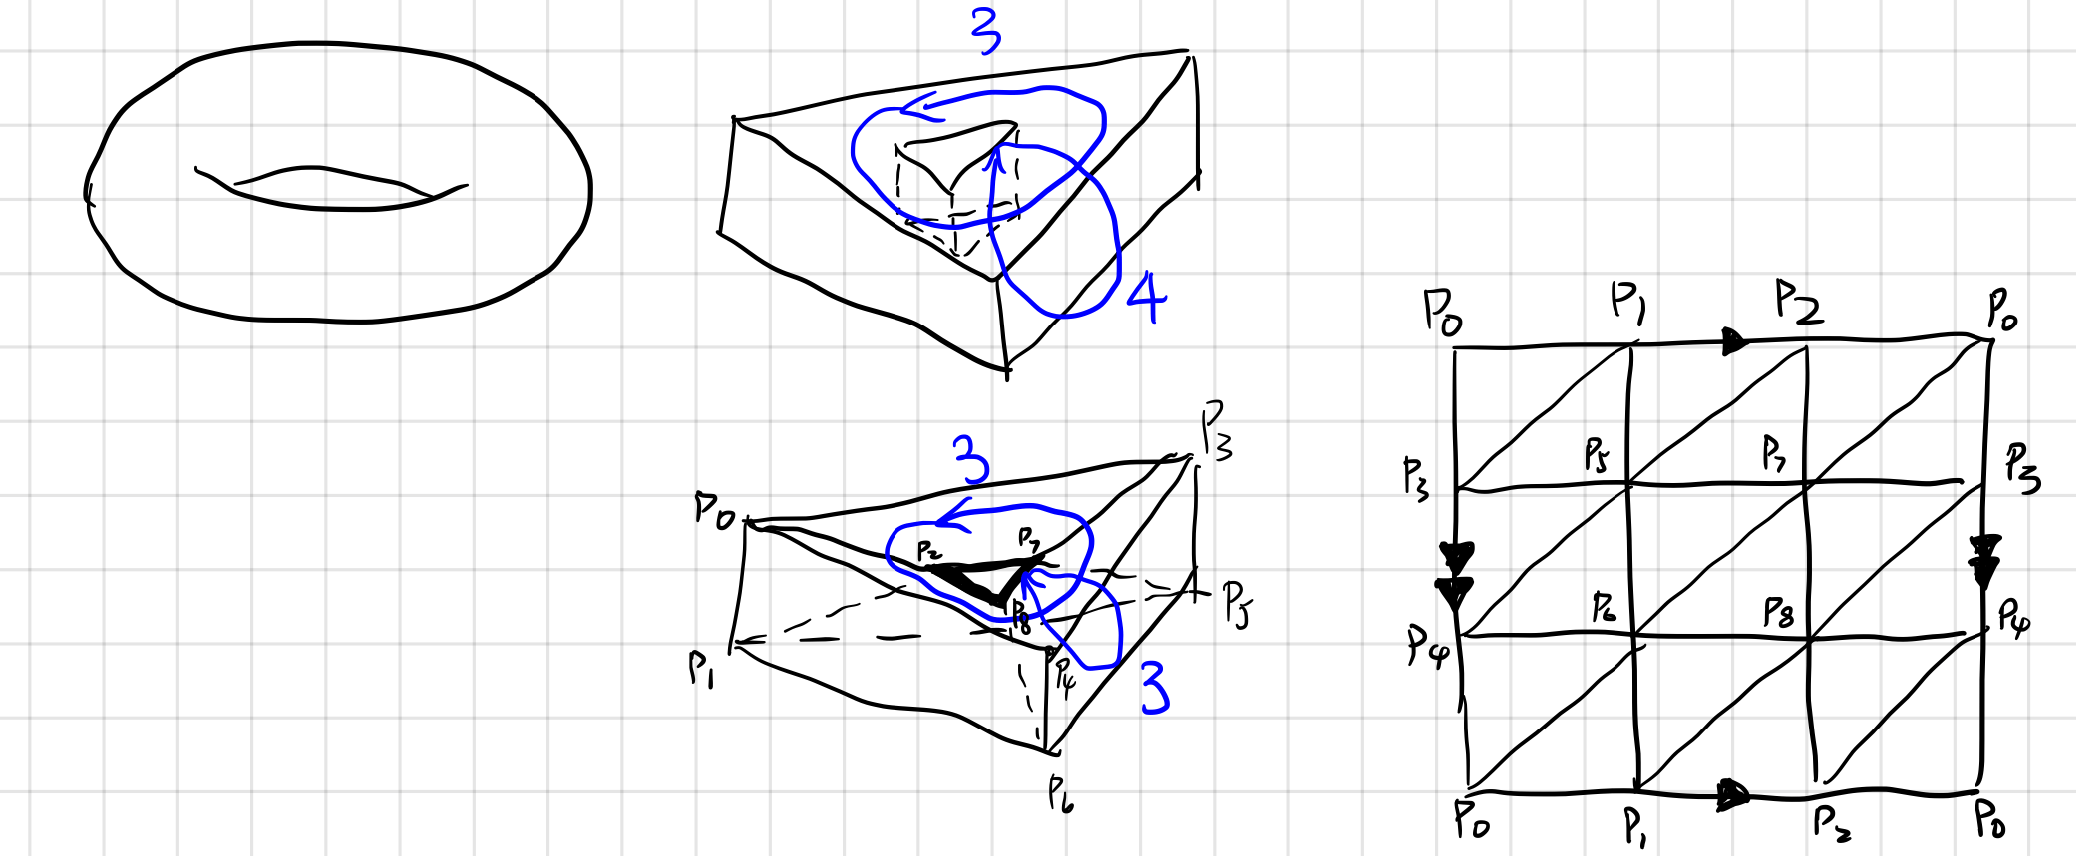 3
4
3
P3
P0
P2
P7
P8
P5
P1
P4
3
P6
P0 P1 P2 P0
P3 P5 P7 P3
P4 P6 P8 P4
P0 P1 P2 P0